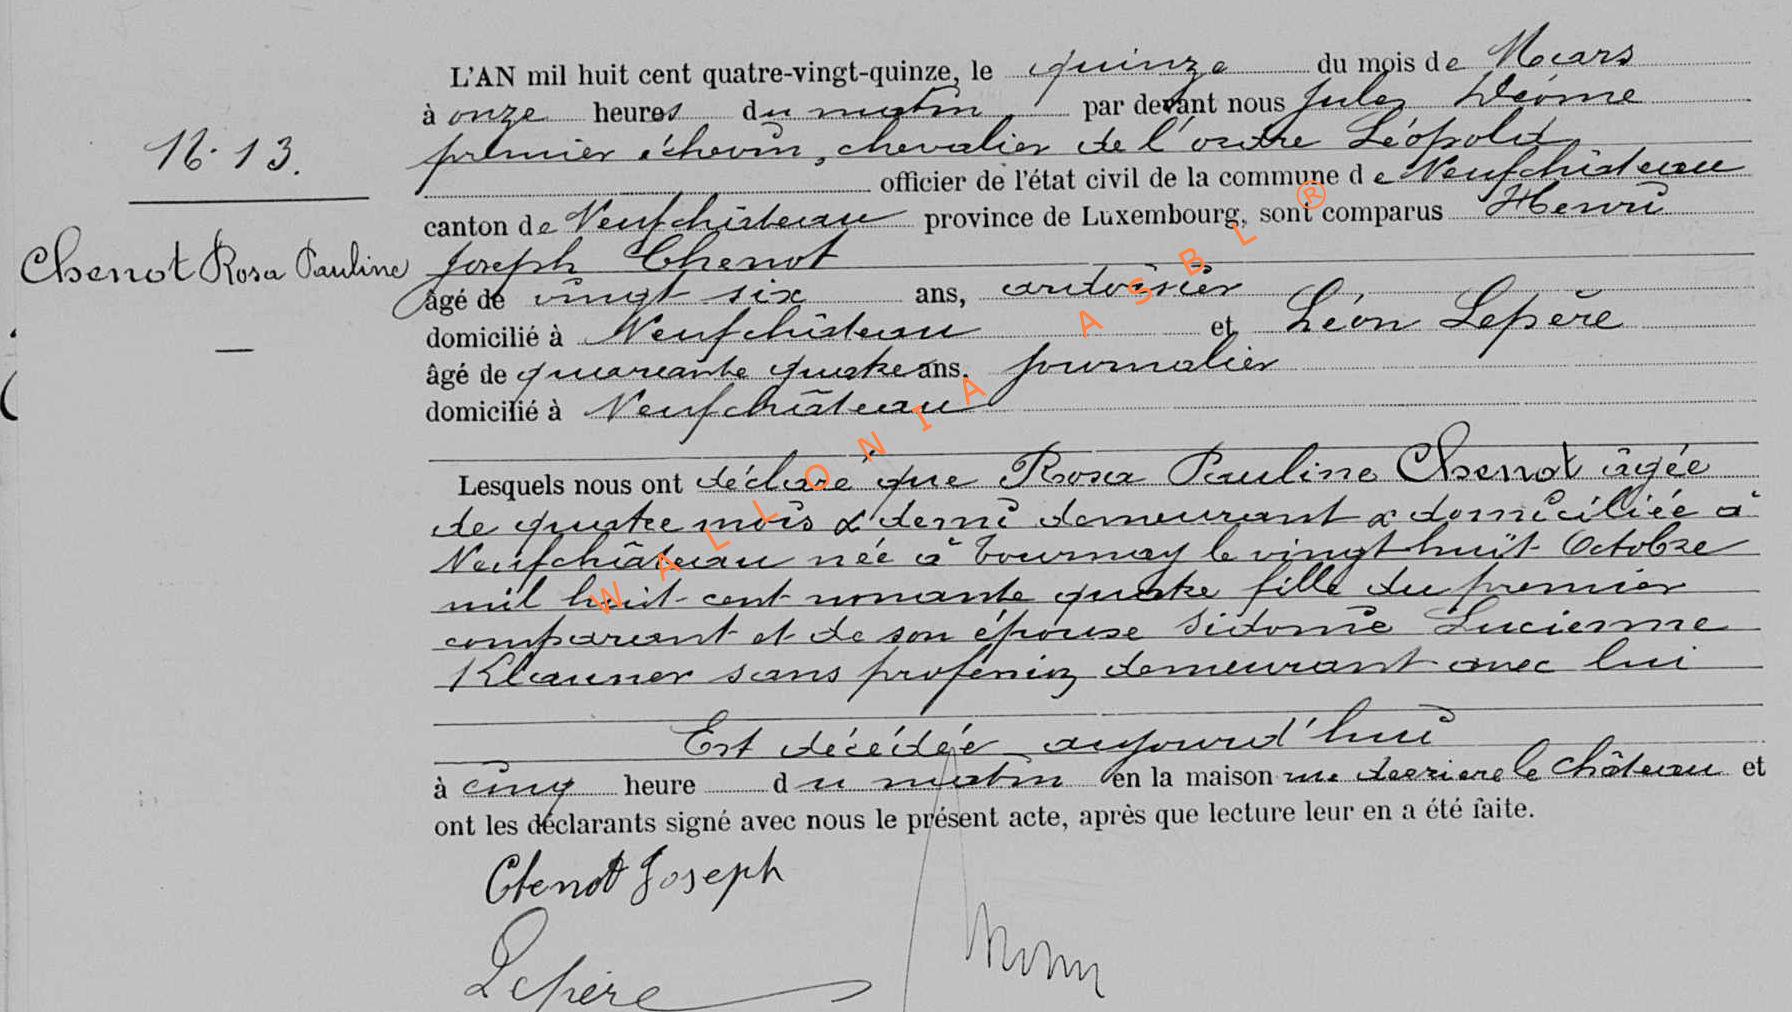 L'AN mil huit cent quatre-vingt-quinze, le quinze du mois de Mars
à onze heures du matin par devant nous Jules
N. 13.
premier échevin, chevalier de l'ordre Léopold
officier de l'état civil de la commune de Neufchâteau
canton de Neufchâteau province de Luxembourg, sont comparus Henri
Chenot Rosa Pauline
Joseph Chenot
âgé de vingt six ans,
domicilié à Neufchâteau et Léon Lepère
âgé de quarante quatre ans. journalier
domicilié à Neufchâteau
Lesquels nous ont déclaré que Rosa Pauline Chenot âgée
de quatre mois & demi demeurant & domiciliée à
Neufchâteau née à Tournay le vingt-huit Octobre
mil huit-cent nonante quatre fille du premier
comparant et de son épouse Sidonie Lucienne
Klauner sans profession demeurant avec lui
Est décédée aujourd'hui
à cinq heure du matin en la maison rue derriere le Château et
ont les déclarants signé avec nous le présent acte, après que lecture leur en a été faite.
Chenot Joseph
Lepère
WALLONIA ASBL ®